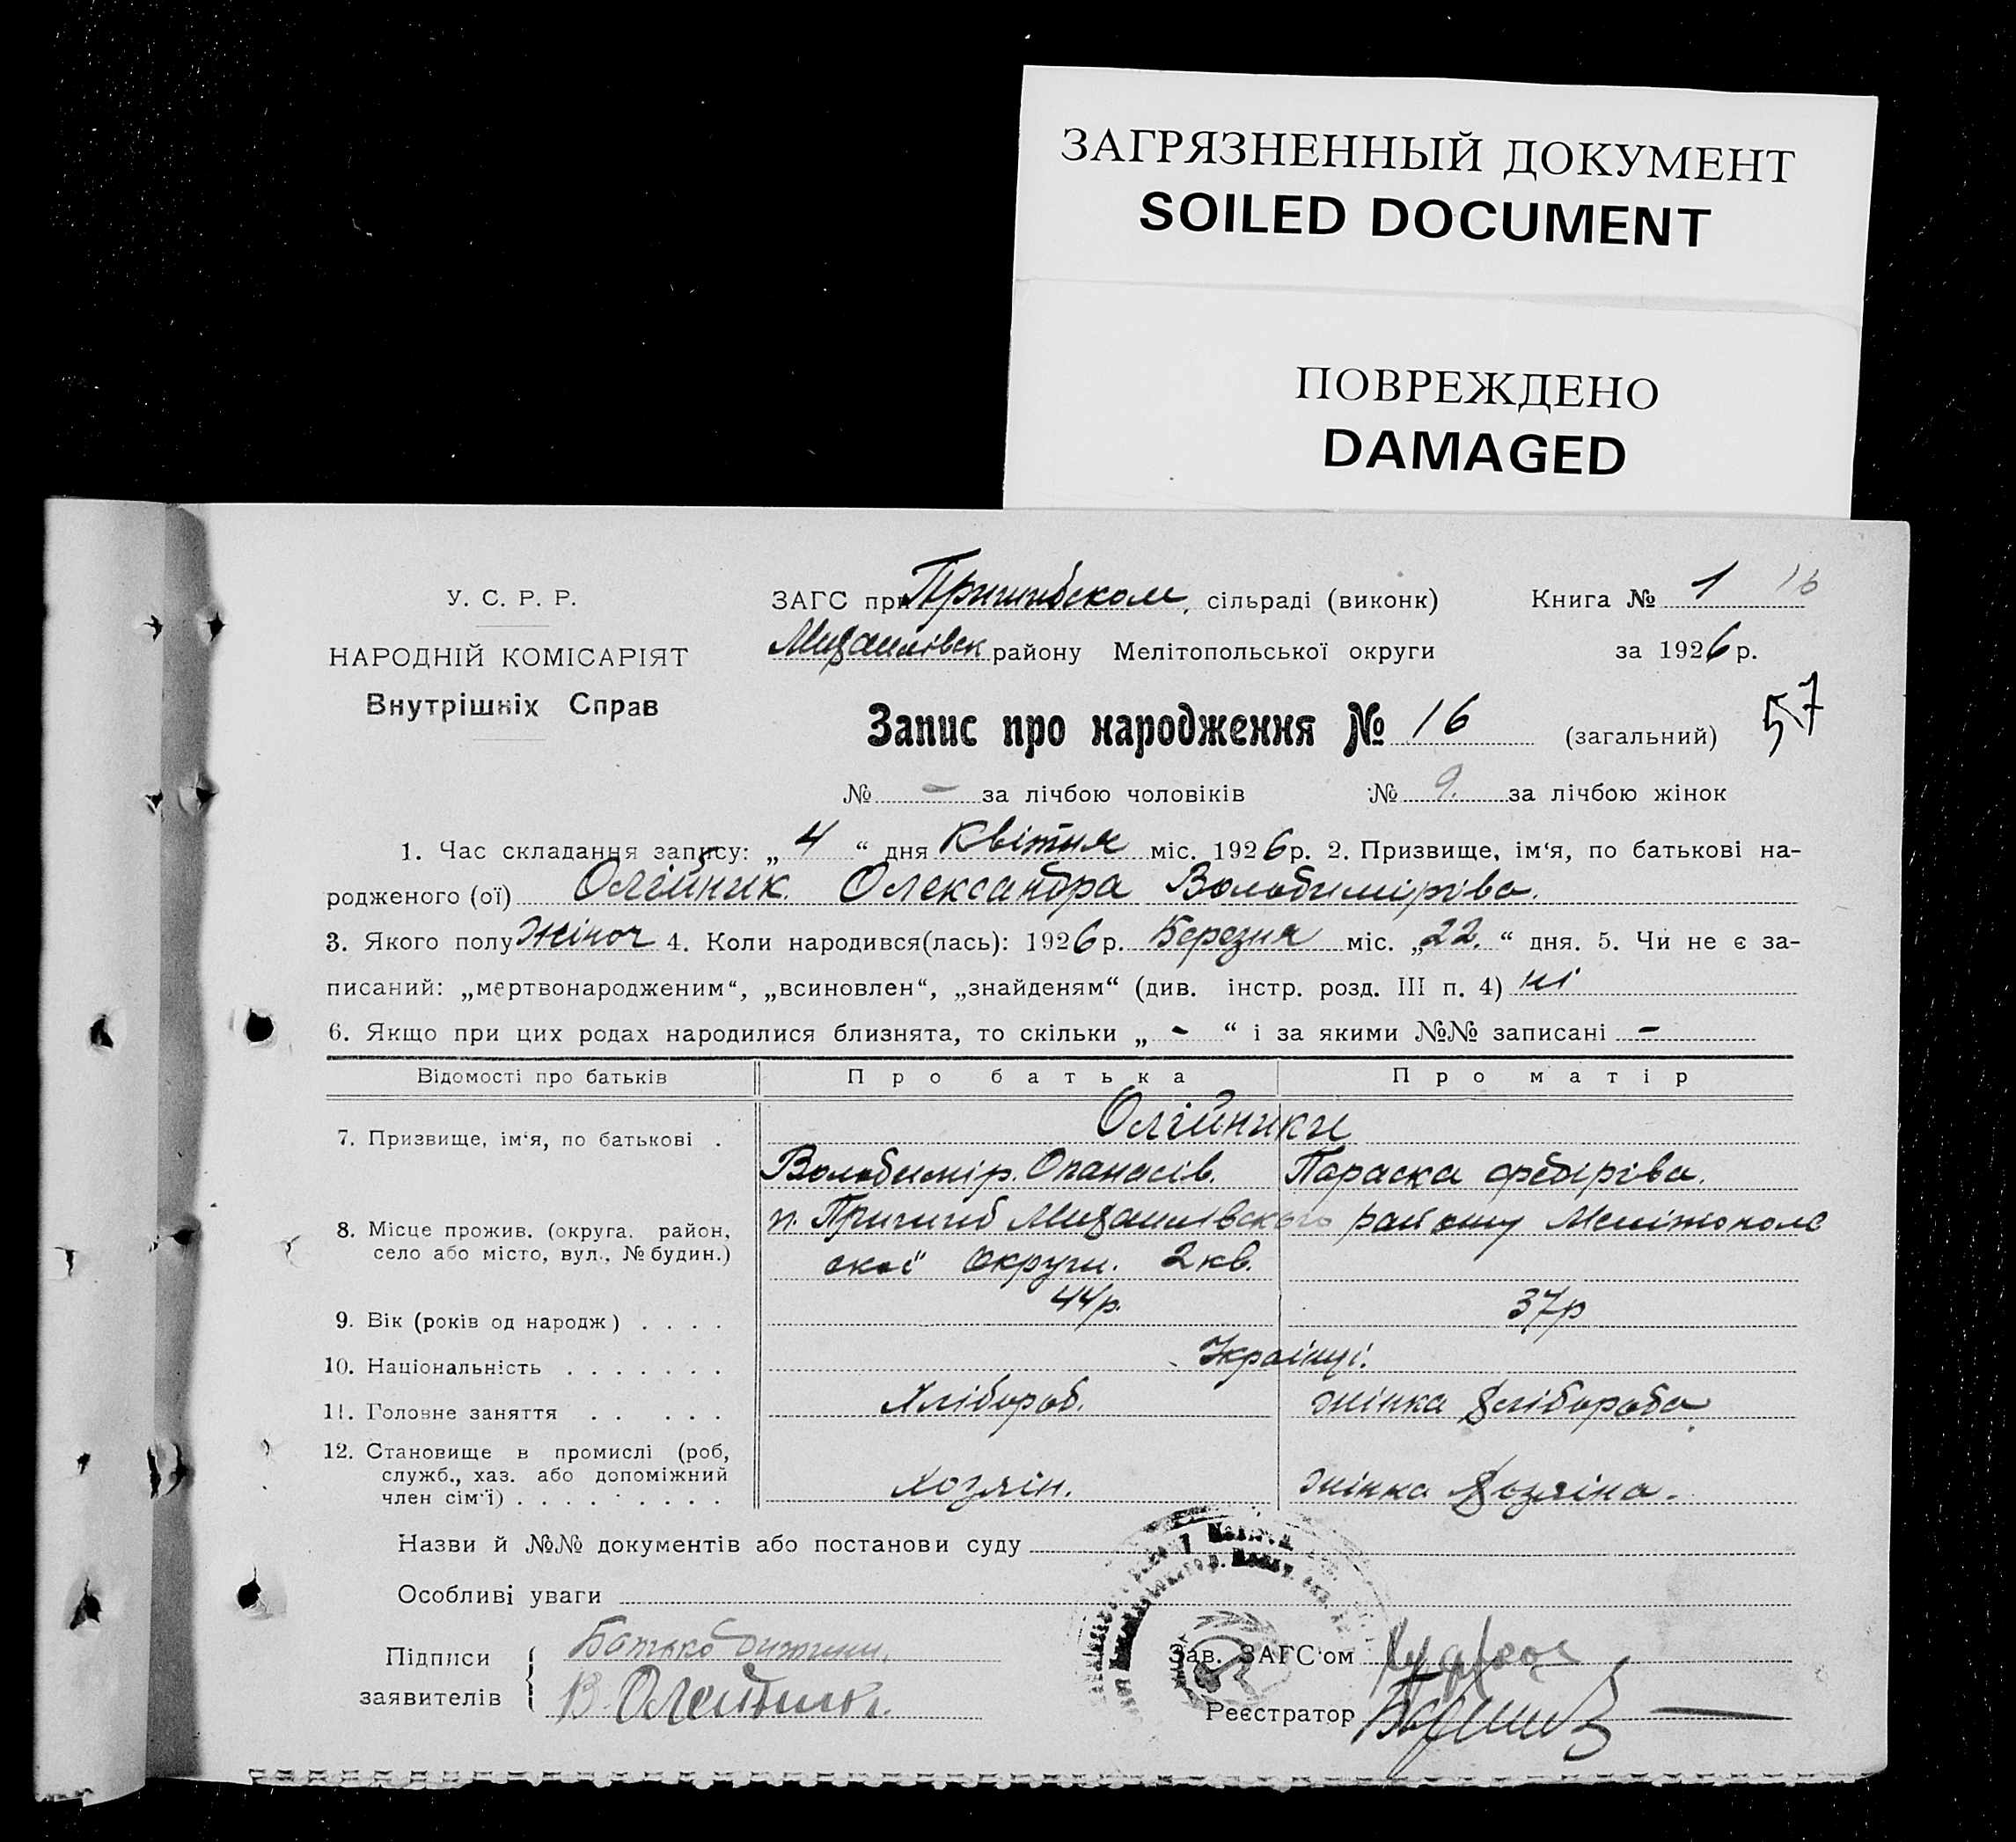 ЗАГРЯЗНЕННЫЙ ДОКУМЕНТ
SOILED DOCUMENT
ПОВРЕЖДЕНО
DAMAGED
У. С. Р. Р.
НАРОДНІЙ КОМІСАРІЯТ
Внутрішніх Справ
ЗАГС при Пришибском, сільраді (виконк) Книга № 1 16
Михайлівск району Мелітопольської округи за 1926 р.
Запис про народження № 16 (загальний) 57
№ - за лічбою чоловіків № 9. за лічбою жінок
1. Час складання запису: „ 4 “ дня Квітня міс. 1926 р. 2. Призвище, ім‘я, по батькові на-
родженого (ої) Олійник. Олександра Володиміріва.
3. Якого полу жіноч 4. Коли народився(лась): 1926 р. Березня міс. „22.“ дня. 5. Чи не є за-
писаний: „мертвонародженим“, „всиновлен“, „знайденям“ (див. інстр. розд. III п. 4) ні
6. Якщо при цих родах народилися близнята, то скільки „ - “ і за якими №№ записані -
Відомості про батьків Про батька Про матір
Олійники
7. Призвище, ім‘я, по батькові . Володимір. Опанасів. Параска Федіріва.
8. Місце прожив. (округа. район, п. Пришиб Михайлівського району Мелітополь
село або місто, вул., № будин.) скої округи. 2 кв.
9. Вік (років од народж) . . . . 44 р. 37 р
10. Національність . . . . . . . Українці.
11. Головне заняття . . . . . Хлібороб. жінка хлібороба
12. Становище в промислі (роб,
служб., хаз. або допоміжний Хозяін. жінка хозяіна.
член сім‘ї) . . . . . . . . .
Назви й №№ документів або постанови суду
Особливі уваги
Підписи Батько дитини. Зав. ЗАГС‘ом
заявителів В. Олейник. Реєстратор